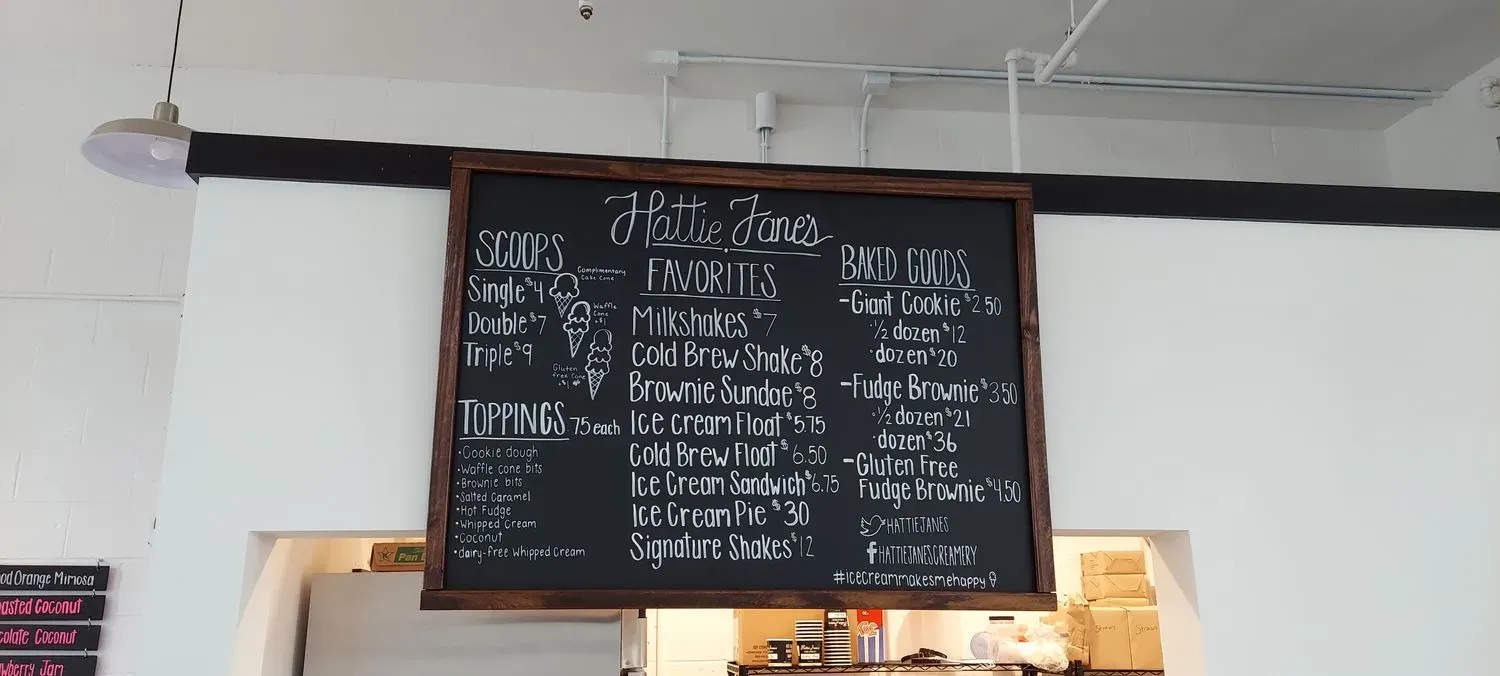 Hattie Jane's
SCOOPS
Single $4
Double $7
Triple $9
Complimentary
Cake Cone
Waffle
Cone
+$1
Gluten
free Cone
+$1
TOPPINGS .75 each
•Cookie dough
•Waffle cone bits
•Brownie bits
•Salted Caramel
•Hot Fudge
•Whipped Cream
•Coconut
•dairy-free Whipped Cream
FAVORITES
Milkshakes $7
Cold Brew Shake $8
Brownie Sundae $8
Ice cream Float $5.75
Cold Brew Float $6.50
Ice Cream Sandwich $6.75
Ice Cream Pie $30
Signature Shakes $12
BAKED GOODS
-Giant Cookie $2.50
•½ dozen $12
•dozen $20
-Fudge Brownie $3.50
•½ dozen $21
•dozen $36
-Gluten Free
Fudge Brownie $4.50
HATTIEJANES
f HATTIEJANESCREAMERY
#icecreammakesmehappy
Pan
od Orange Mimosa
asted Coconut
colate Coconut
wberry Jam